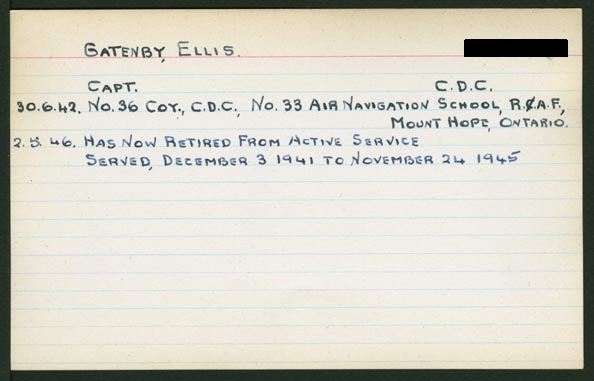 GATENBY, ELLIS.
CAPT. C.D.C.
30.6.42. NO. 36 COY., C.D.C., NO. 33 AIR NAVIGATION SCHOOL, R.A.F.,
MOUNT HOPE, ONTARIO.
2.5.46. HAS NOW RETIRED FROM ACTIVE SERVICE
SERVED, DECEMBER 3 1941 TO NOVEMBER 24 1945